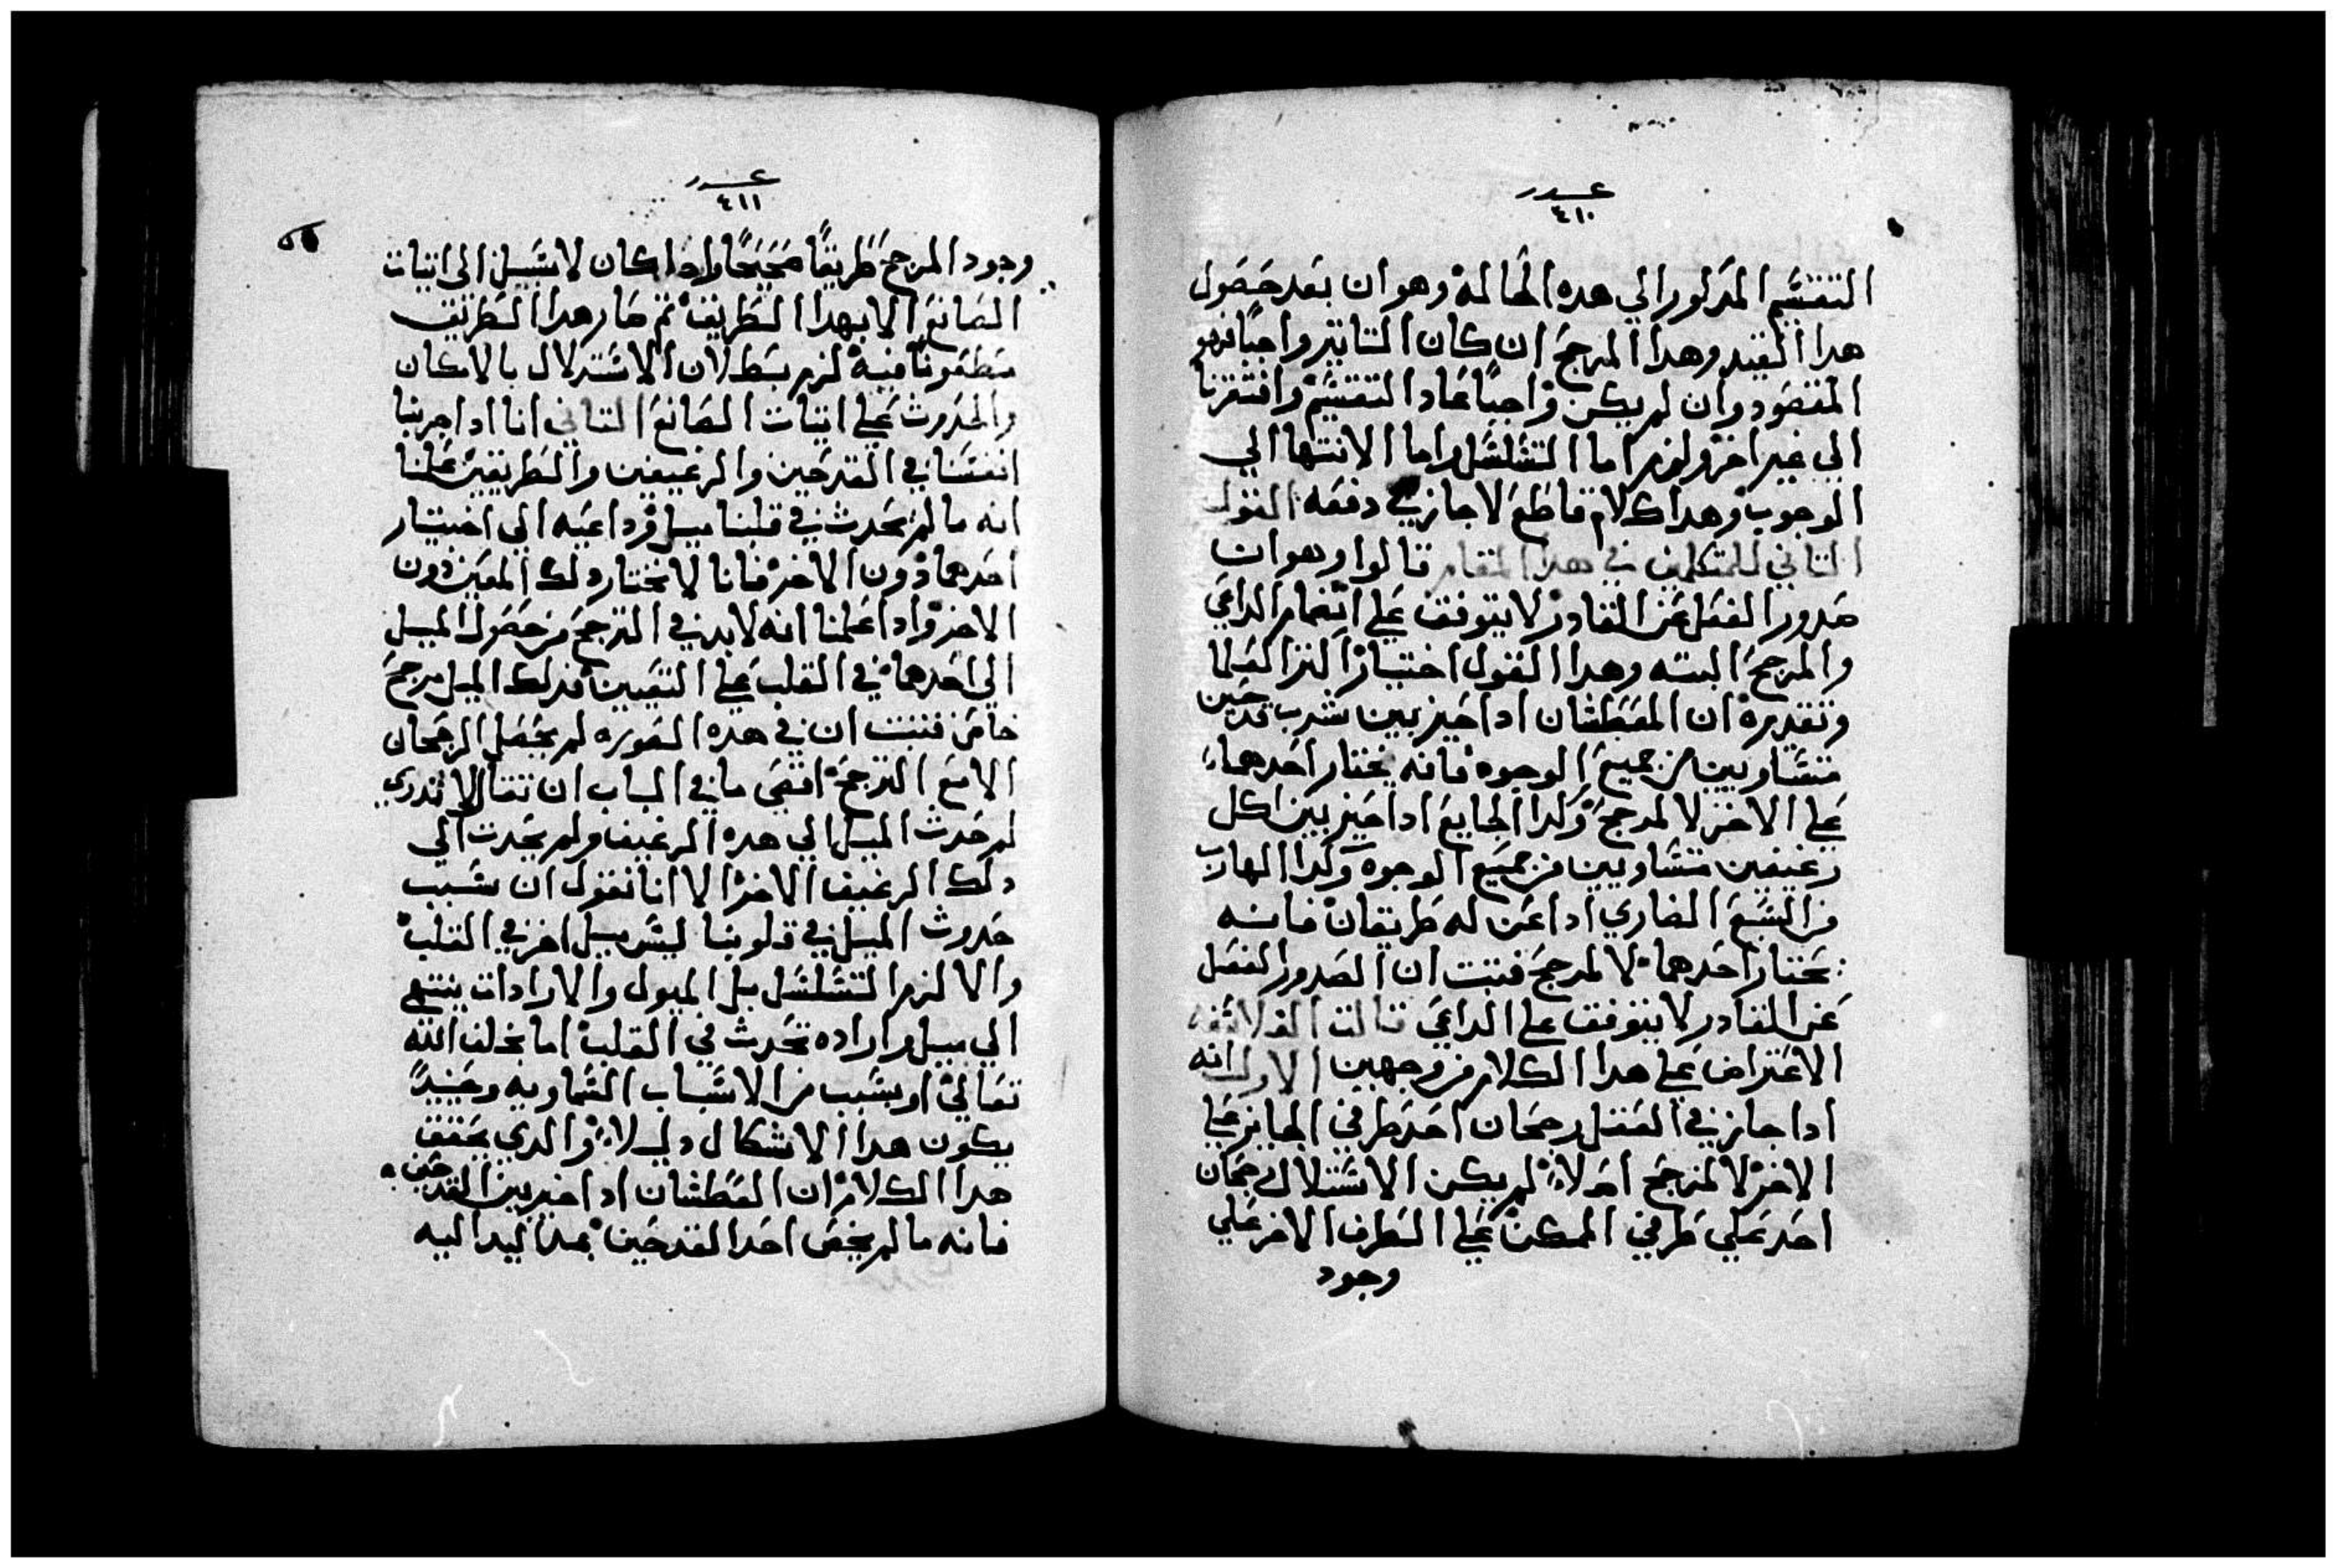 عدد
٤١٠
التقسيم المدكور الي هده الحالة وهو ان بعد حصول
هدا القيد وهدا المرجح ان كان التاتير واجبًا فهو
المقصود وان لم يكن واجبًا عاد التقسيم وافتقرنا
الي غير اخر ولزم اما التسلسل واما الانتها الي
الوجوب وهدا كلام قاطع لا جاز في دفعه القول
التاني للمتكلمين في هدا المقام قالوا وهو ان
صدور الفعل عن القادر لا يتوقف علي انضمام الداعي
والمرجح البته وهدا القول اختيار اكتر العلما
وتقديره ان العطشان ادا خير بين شرب قدحين
متساويين من جميع الوجوه فانه يختار احدهما
علي الاخر لا لمرجح وكدا الجايع ادا خير بين اكل
رغيفين متساويين من جميع الوجوه وكدا الهارب
من السبع الضاري ادا عن له طريقان فانه
يختار احدهما لا لمرجح فتبت ان الصدور الفعل
عن القادر لا يتوقف علي الداعي قالت الفلاسفه
الاعتراض علي هدا الكلام من وجهين الاول انه
ادا جاز في العقل رجحان احد طرفي الجايز علي
الاخر لا لمرجح اصلاً لم يكن الاستدلال رجحان
احد علي طرفي الممكن علي الطرف الاخر علي
وجود
عدد
٤١١
وجود المرجح طريقًا صحيحًا وادا كان لا سبيل الي اتبات
الصانع الا بهدا الطريق تم صار هدا الطريق
مطعونًا فيه لزم بطلان الاستدلال بالامكان
والحدوث علي اتبات الصانع التاني انا ادا جربنا
انفسنا في القدحين والرغيفين والطريقين علمنا
انه ما لم يحدث في قلبنا ميل وداعيه الي اختيار
احدهما دون الاخر فانا لا نختار دلك المعين دون
الاخر وادا علمنا انه لا بد في الترجح من حصول الميل
الي احدهما في القلب علي التعيين فدلك الميل مرجح
خاص فتبت ان في هده الصوره لم يحصل الرجحان
الا مع الترجح اقصي ما في الباب ان تقال لا ندري
لم حدث الميل الي هده الرغيف ولم يحدت الي
دلك الرغيف الاخر الا انا نقول ان سبب
حدوث الميل في قلوبنا ليس ميل اخر في القلب
والا لزم التسلسل بل الميول والارادات ينتهي
الي ميل واراده تحدث في القلب اما بخلق الله
تعالي او بسبب من الاسباب السماويه وحينيدً
يكون هدا الاشكال دليلاً والدي يحقق
هدا الكلام ان العطشان ادا خير بين القدحين
فانه ما لم يخص احد القدحين بمد اليد اليه